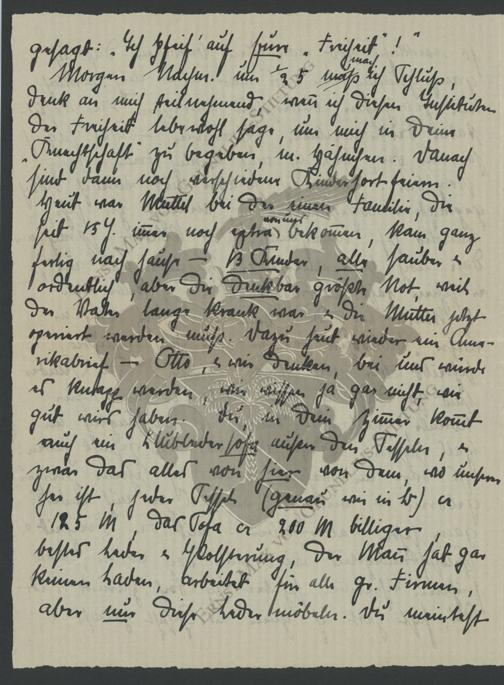 gesagt: „Ich pfeif' auf Eure „Freiheit"!"
Morgen Nachm. um ½ 5 mach ich Schluß,
denk an mich teilnehmend, wenn ich diesen Instituten
der Freiheit lebewohl sage, um mich in Deine
„Knechtschaft" zu begeben, m. Hähnchen. Danach
sind dann noch verschiedene Kinderhortfeiern.
Heut war Muttel bei der einen Familie, die
seit 15 J. immer noch extra von uns bekommen, kam ganz
fertig nach Hause — 13 Kinder, alle sauber u
ordentlich, aber die denkbar größte Not, weil
der Vater lange krank war u die Mutter jetzt
operiert werden muß. Dazu heut wieder ein Ame-
rikabrief — Otto, u wir denken, bei uns würde
es knapp werden, wir wissen ja gar nicht, wie
gut wirs haben. Du, in Dein Zimmer kommt
auch ein Klubledersofa außer den Sesseln, u
zwar das alles von hier von dem, wo unsern
her ist, jeder Sessel (genau wie in B) ca
125 M, das Sofa ca 200 M billiger,
bestes Leder u Polsterung, der Mann hat gar
keinen Laden, arbeitet für alle gr. Firmen,
aber nur diese Ledermöbeln. Du meintest